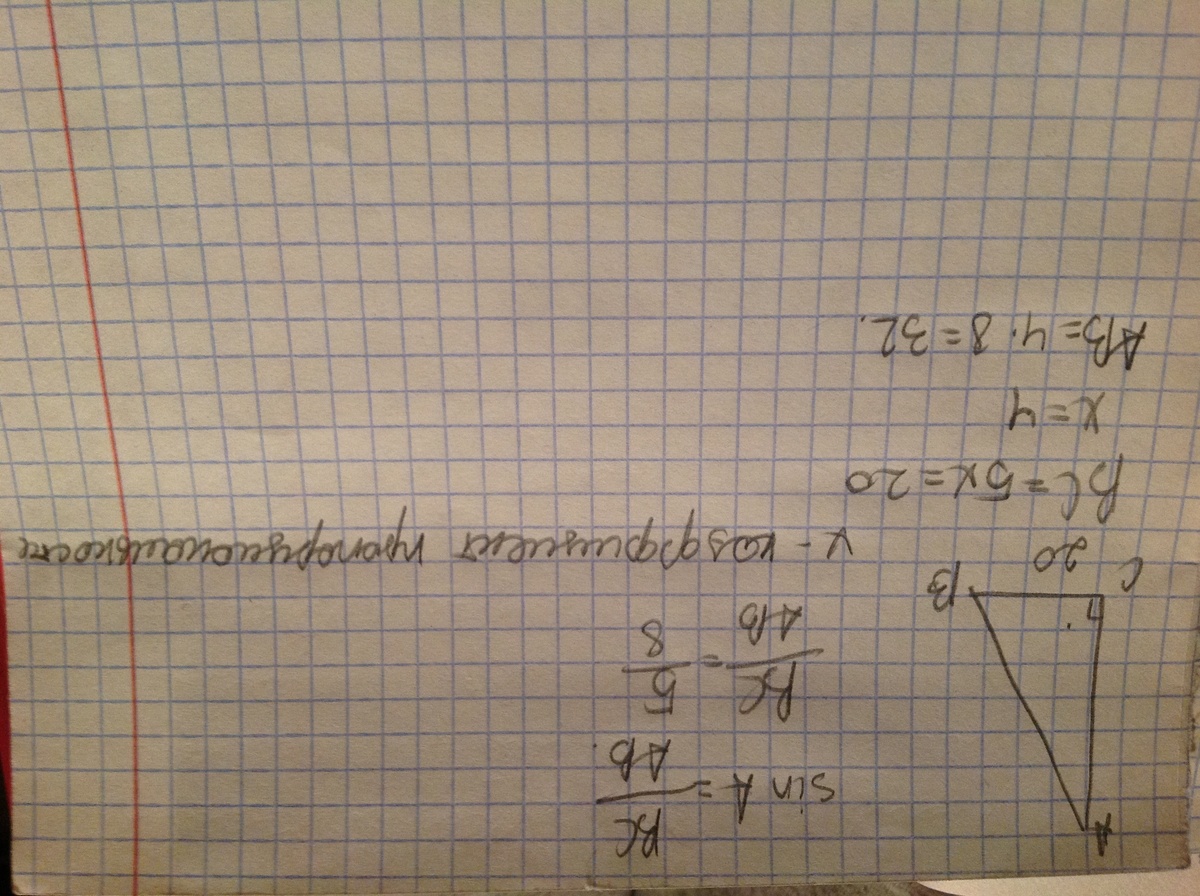 A
C
20
B
sin A = BC/AB
BC/AB = 5/8
х - коэффициент пропорциональности
BC = 5x = 20
x = 4
AB = 4 · 8 = 32.